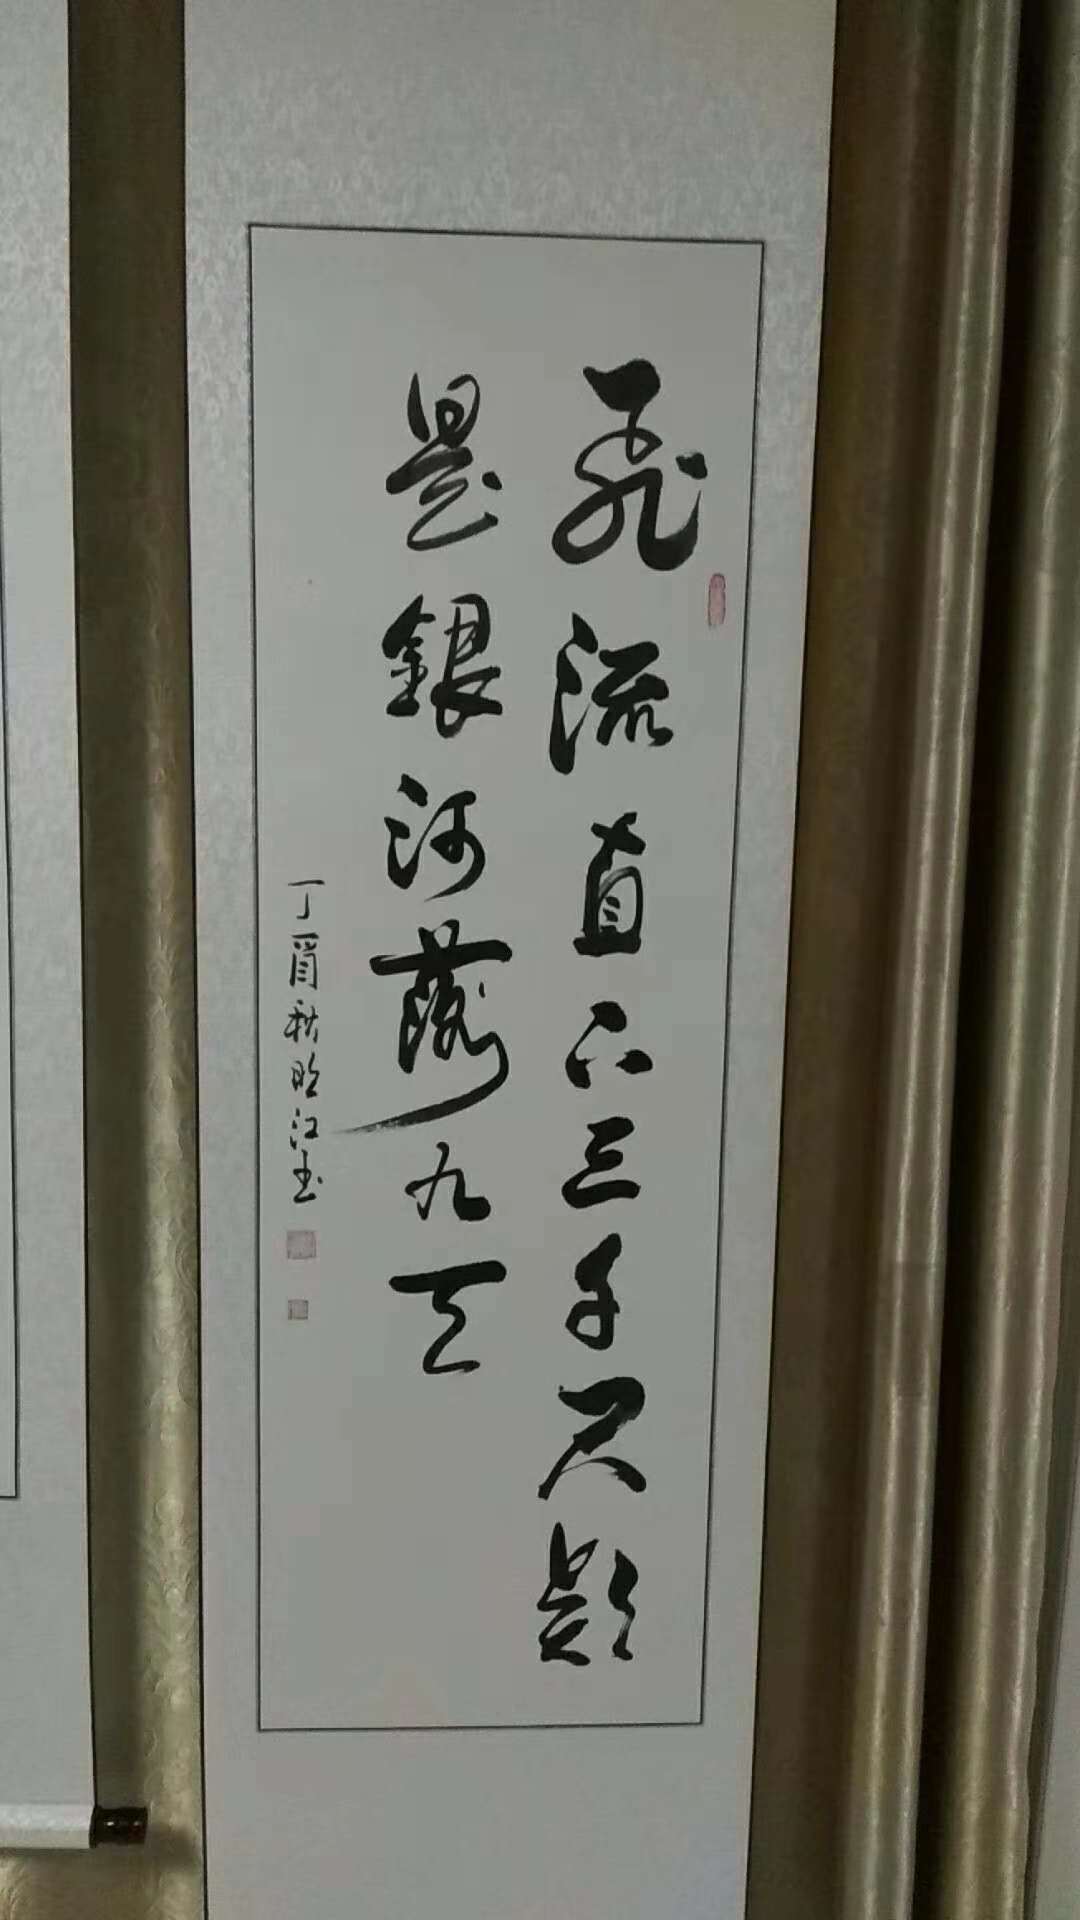 飛流直下三千尺疑
是銀河落九天
丁酉秋明江书